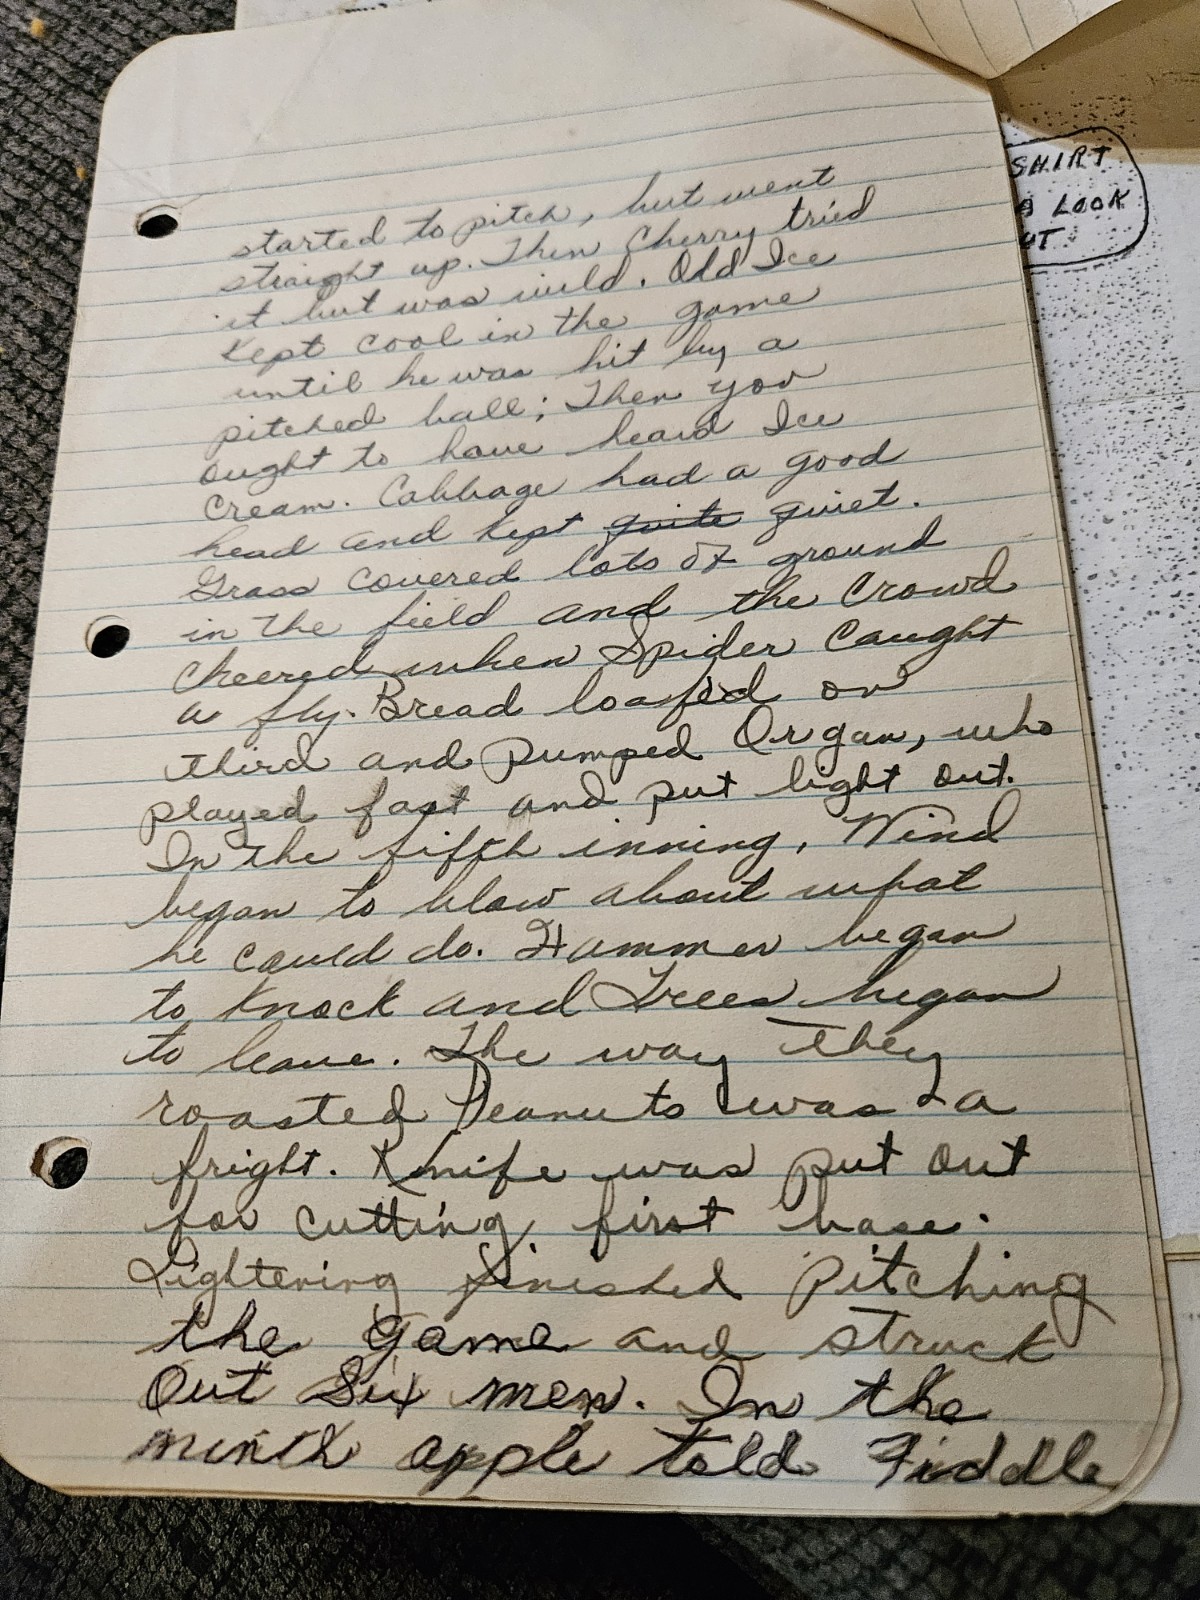 started to pitch, but went
straight up. Then Cherry tried
it but was wild. Old Ice
Kept cool in the game
until he was hit by a
pitched ball; Then you
ought to have heard Ice
Cream. Cabbage had a good
head and kept quite quiet.
Grass covered lots of ground
in the field and the Crowd
cheered when Spider Caught
a fly. Bread loafed on
third and pumped Organ, who
played fast and put light out.
In the fifth inning, Wind
began to blow about what
he could do. Hammer began
to knock and Trees began
to leave. The way they
roasted Peanuts was a
fright. Knife was put out
for cutting first base.
Lightening finished Pitching
the game and struck
Out Six men. In the
ninth apple told Fiddle
SHIRT
LOOK